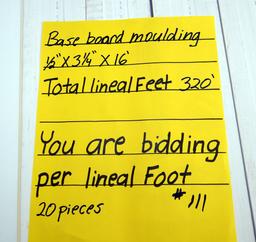 Base board moulding
½"X3¼"X16'
Total lineal Feet 320'
You are bidding
per lineal Foot
#111
20 pieces